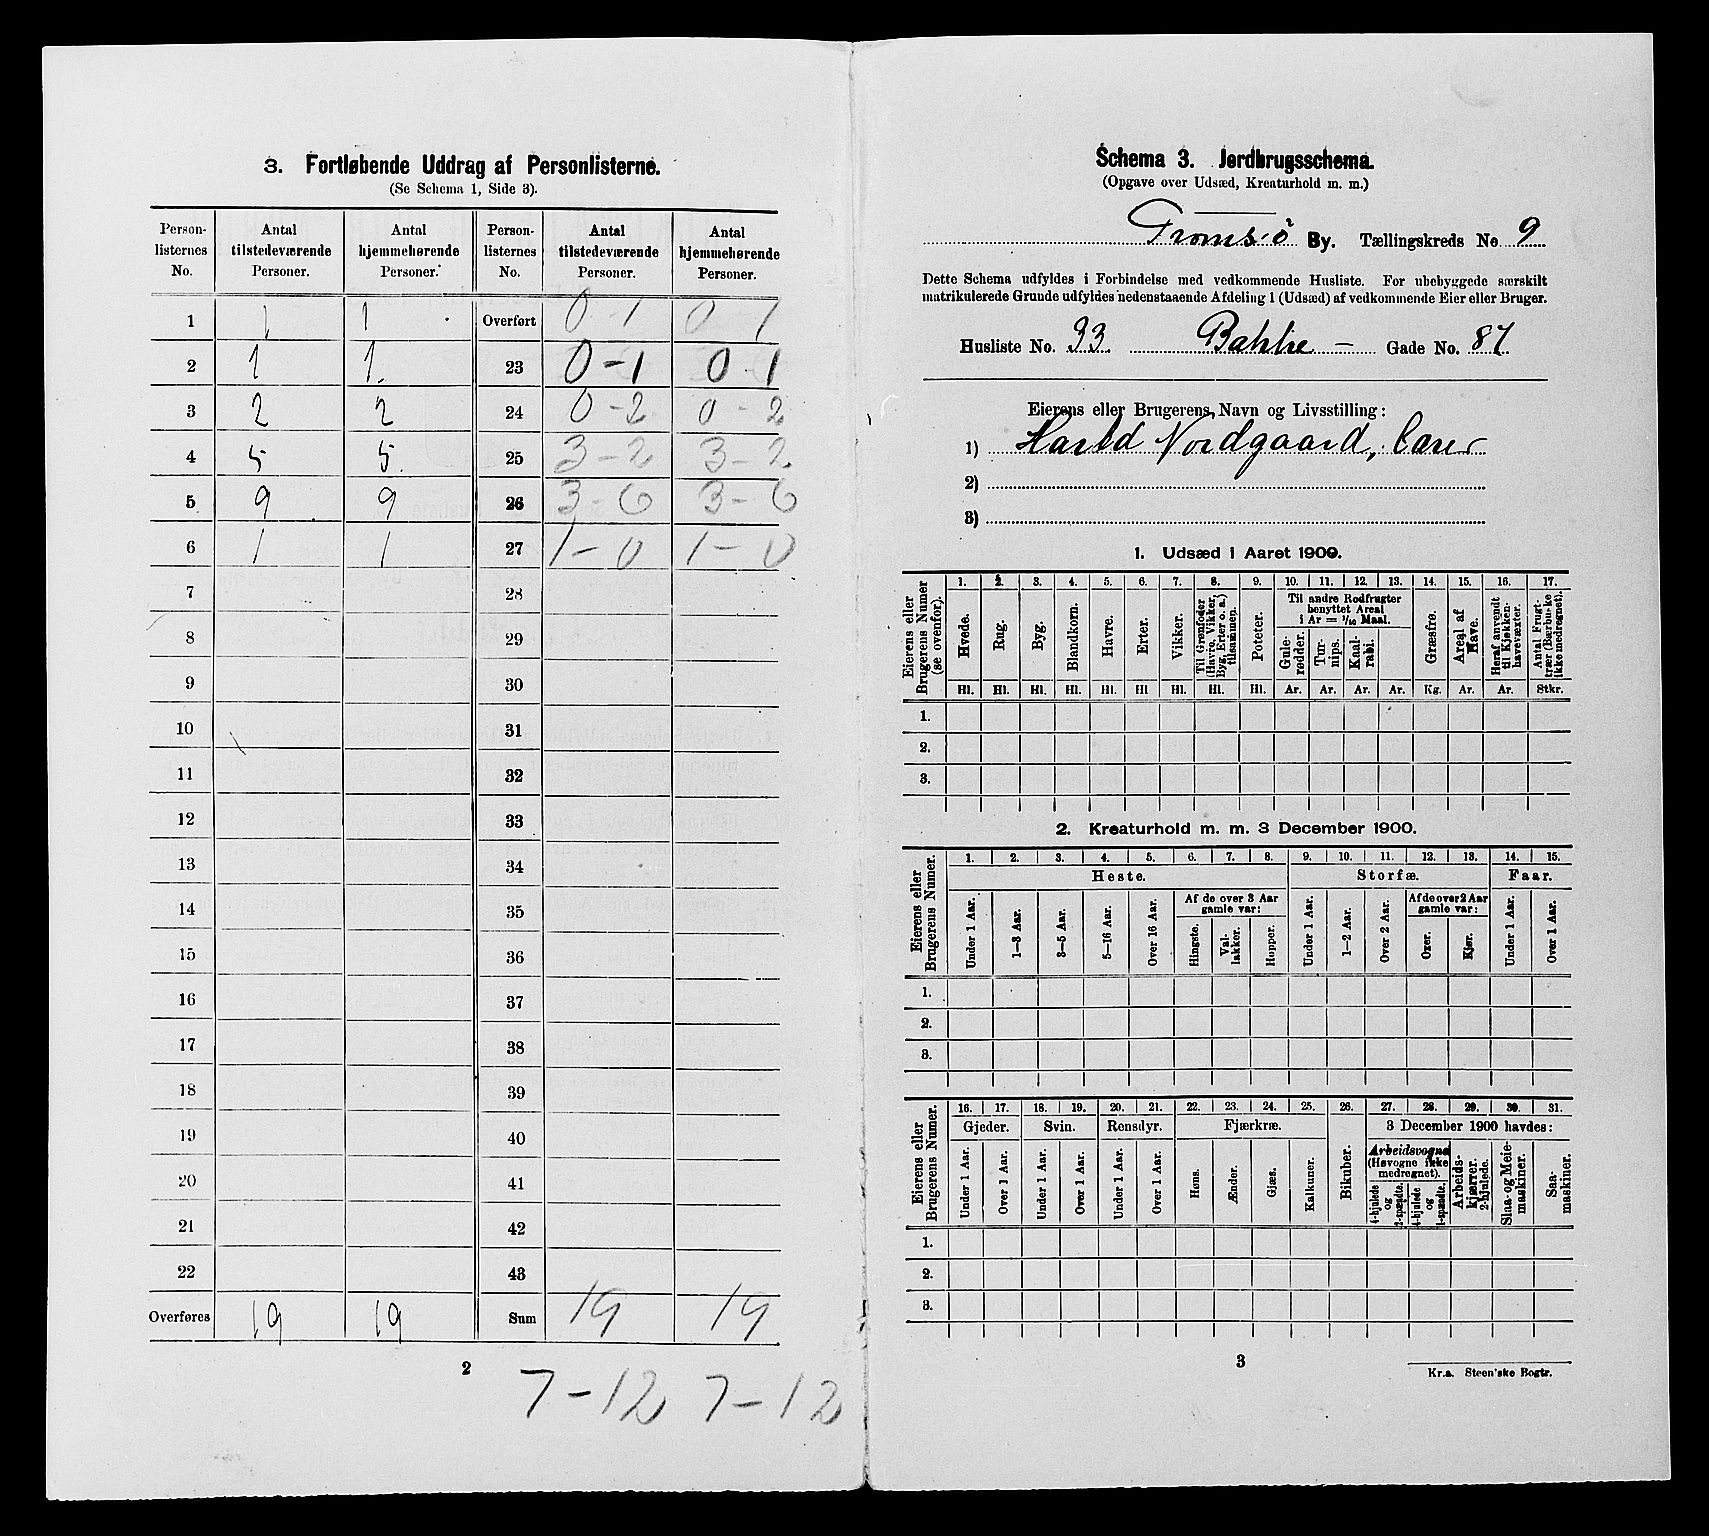 3. Fortløbende Uddrag af Personlisterne.
(Se Schema 1, Side 3).
Person-listernes No. | Antal tilstedeværende Personer. | Antal hjemmehørende Personer. | Person-listernes No. | Antal tilstedeværende Personer. | Antal hjemmehørende Personer.
1 | 1 | 1 | Overført | 0 1 | 0 1
2 | 1 | 1. | 23 | 0-1 | 0 1
3 | 2 | 2 | 24 | 0-2 | 0-2
4 | 5 | 5. | 25 | 3-2 | 3-2
5 | 9 | 9 | 26 | 3-6 | 3-6
6 | 1 | 1 | 27 | 1-0 | 1-0
7 | 28
8 | 29
9 | 30
10 | 31
11 | 32
12 | 33
13 | 34
14 | 35
15 | 36
16 | 37
17 | 38
18 | 39
19 | 40
20 | 41
21 | 42
22 | 43
Overføres | 19 | 19 | Sum | 19 | 19
2
7-12 7-12
Schema 3. Jordbrugsschema.
(Opgave over Udsæd, Kreaturhold m. m.)
Tromsö By. Tællingskreds No 9
Dette Schema udfyldes i Forbindelse med vedkommende Husliste. For ubebyggede særskilt
matrikulerede Grunde udfyldes nedenstaaende Afdeling 1 (Udsæd) af vedkommende Eier eller Bruger.
Husliste No. 33. Bakke - Gade No. 87
Eierens eller Brugerens Navn og Livsstilling:
1) Nordgaard,
2)
3)
1. Udsæd i Aaret 1900.
Eierens eller Brugerens Numer (se ovenfor).
1. 2. 3. 4. 5. 6. 7. 8. 9. 10. 11. 12. 13. 14. 15. 16. 17.
Til andre Rodfrugter benyttet Areal i Ar = 1/10 Maal.
Hvede. Rug. Byg. Blandkorn. Havre. Erter. Vikker. Til Grønfoder (Havre, Vikker, Byg, Erter o. a.) tilsammen. Poteter. Gule-rødder. Tur-nips. Kaal-rabi. Græsfrø. Areal af Have. Heraf anvendt til Kjøkken-havevæxter. Antal Frugt-trær (Bærbuske ikke medregnet).
Hl. Hl. Hl. Hl. Hl. Hl Hl. Hl. Hl. Ar. Ar. Ar. Ar. Kg. Ar. Ar. Stkr.
1.
2.
3.
2. Kreaturhold m. m. 3 December 1900.
Eierens eller Brugerens Numer.
1. 2. 3. 4. 5. 6. 7. 8. 9. 10. 11. 12. 13. 14. 15.
Heste. Storfæ. Faar.
Af de over 3 Aar gamle var: Af de over 2 Aar gamle var:
Under 1 Aar. 1—3 Aar. 3—5 Aar. 5—16 Aar. Over 16 Aar. Hingste. Val-lakker. Hopper. Under 1 Aar. 1—2 Aar. Over 2 Aar. Oxer. Kjør. Under 1 Aar. Over 1 Aar.
1.
2.
3.
Eierens eller Brugerens Numer.
16. 17. 18. 19. 20. 21. 22. 23. 24. 25. 26. 27. 28. 29. 30. 31.
Gjeder. Svin. Rensdyr. Fjærkræ. 3 December 1900 havdes:
Arbeidsvogne (Høvogne ikke medregnet).
Under 1 Aar. Over 1 Aar. Under 1 Aar. Over 1 Aar. Under 1 Aar. Over 1 Aar. Høns. Ænder. Gjæs. Kalkuner. Bikuber. 4-hjulede og 2-spændte. 4-hjulede og 1-spændte. Arbeids-kjærrer, 2-hjulede. Slaa- og Meie-maskiner. Saa-maskiner.
1.
2.
3.
3
Kr.a. Steen'ske Bogtr.